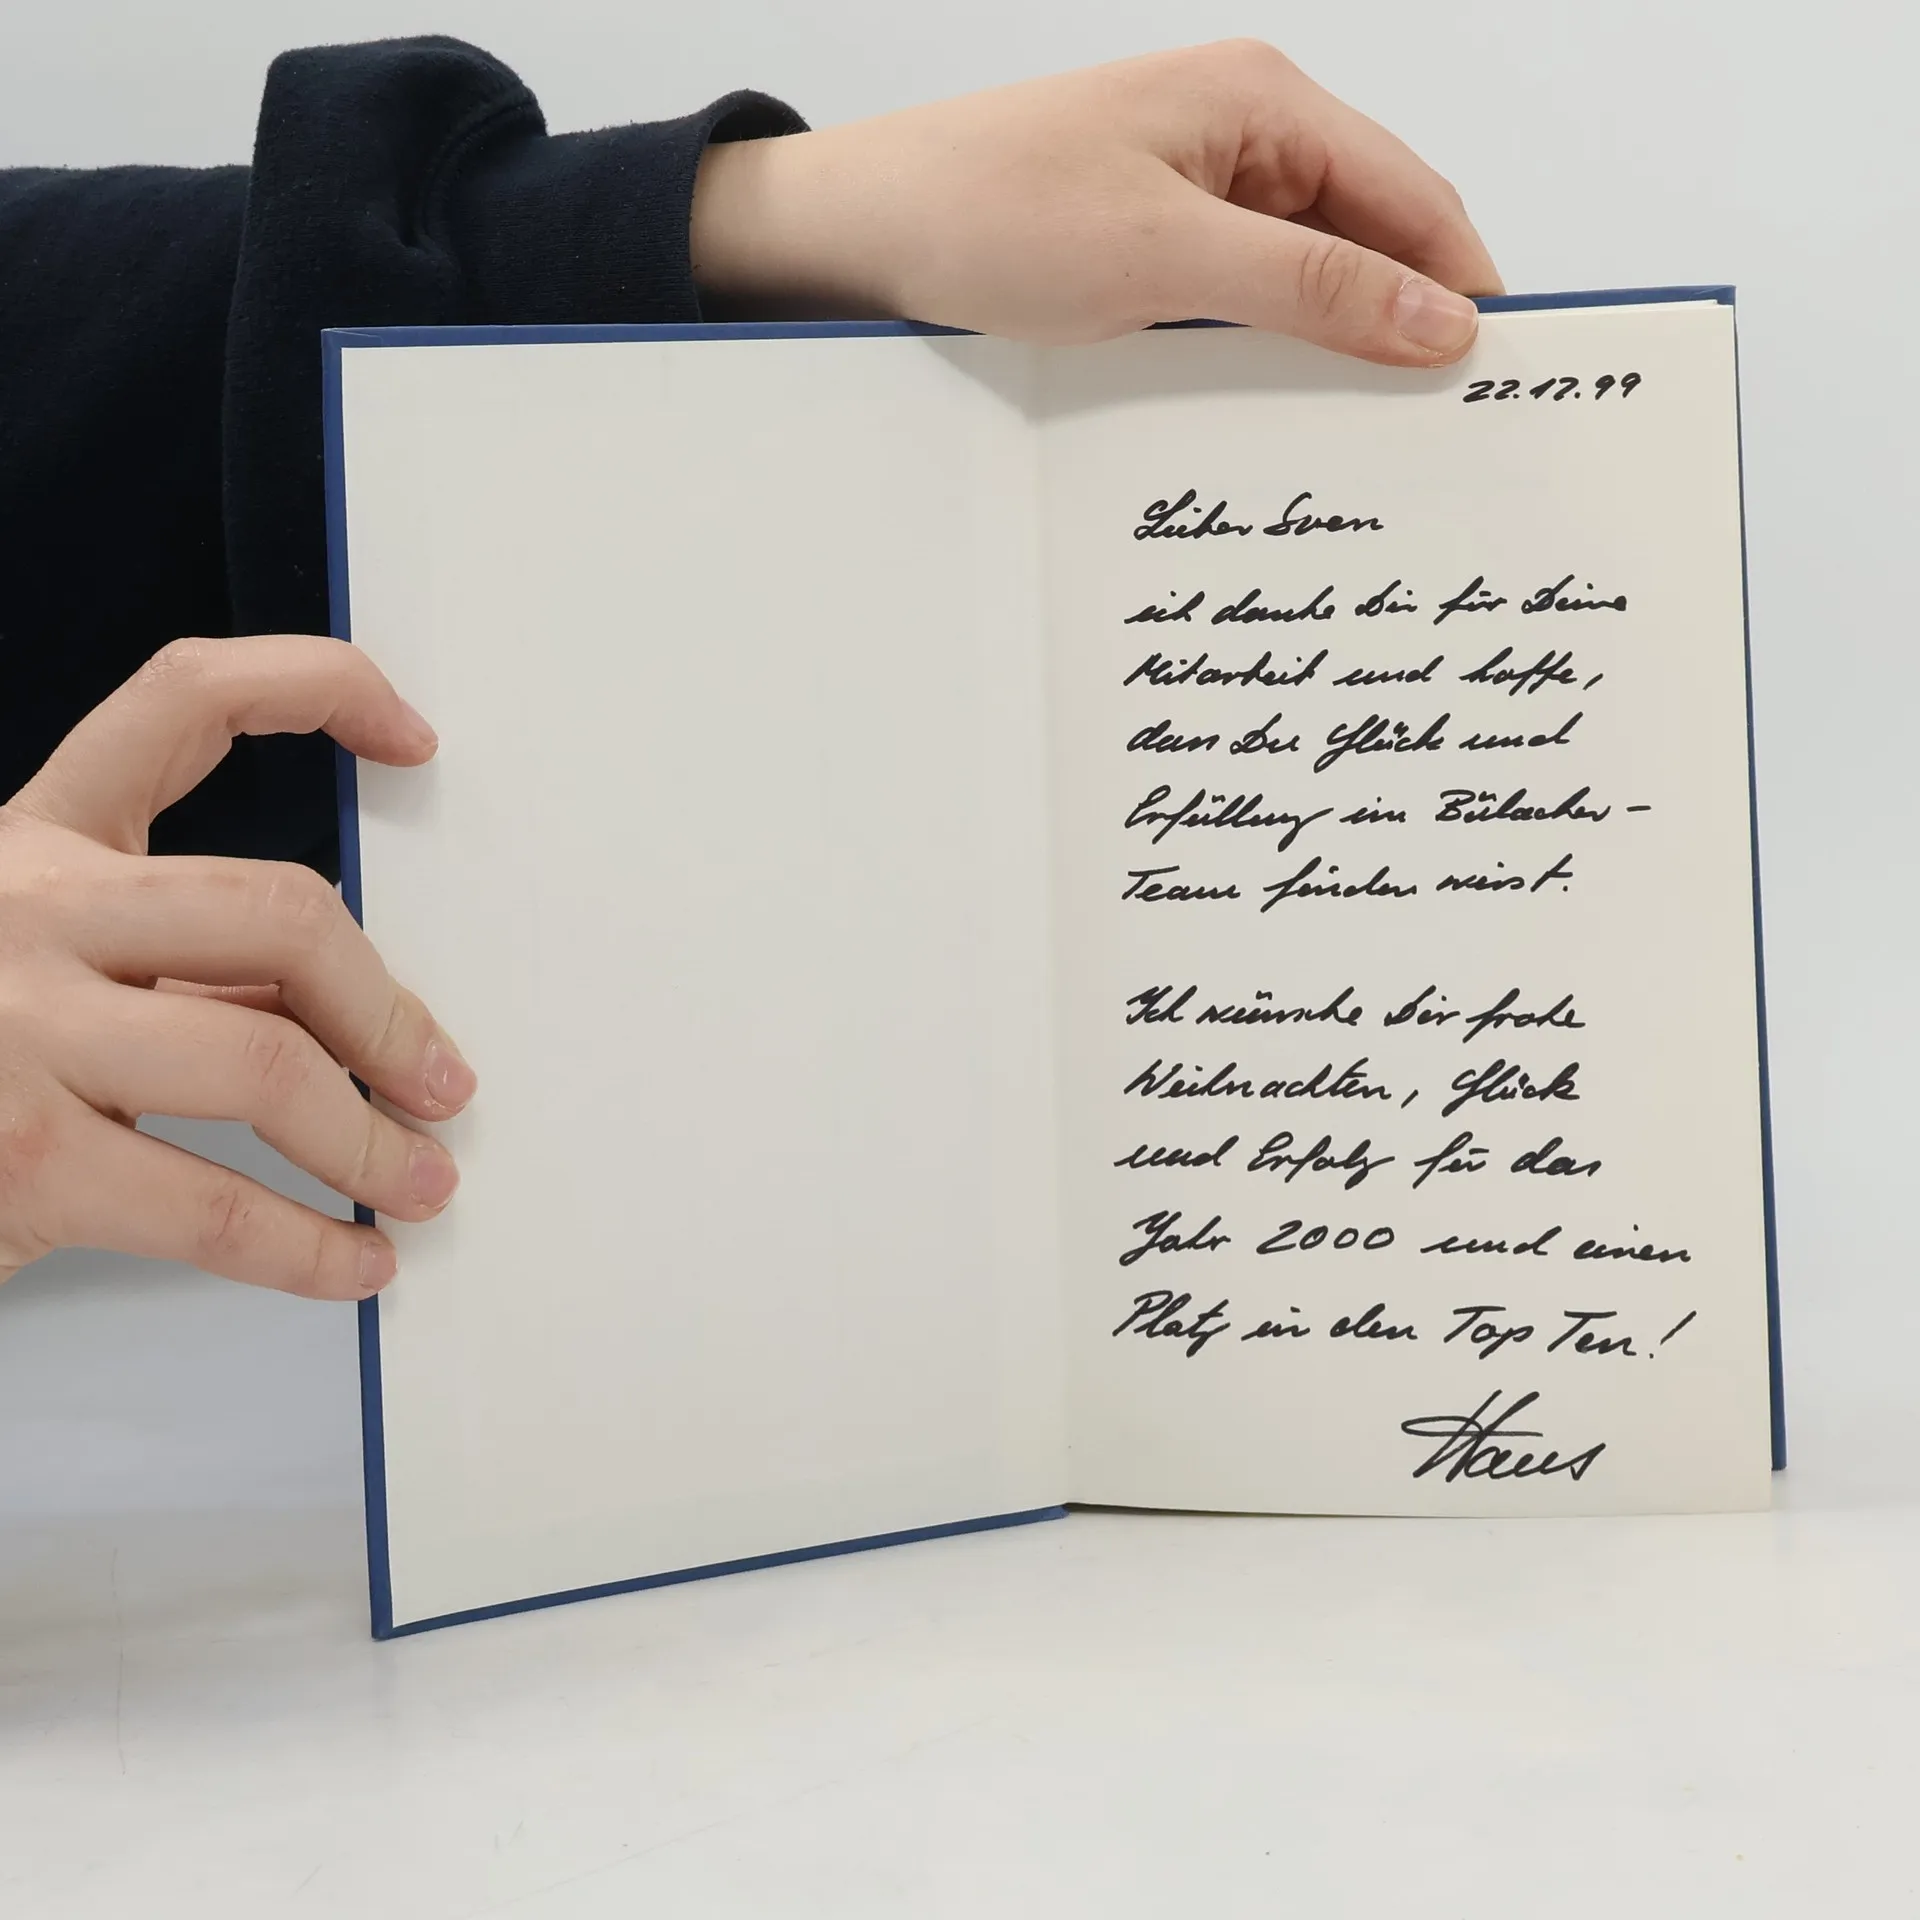 22.12.99
Lieber Sven
ich danke Dir für Deine
Mitarbeit und hoffe,
dass Du Glück und
Erfüllung im Bülacher-
Team finden wirst.
Ich wünsche Dir frohe
Weihnachten, Glück
und Erfolg für das
Jahr 2000 und einen
Platz in den Top Ten!
Hans